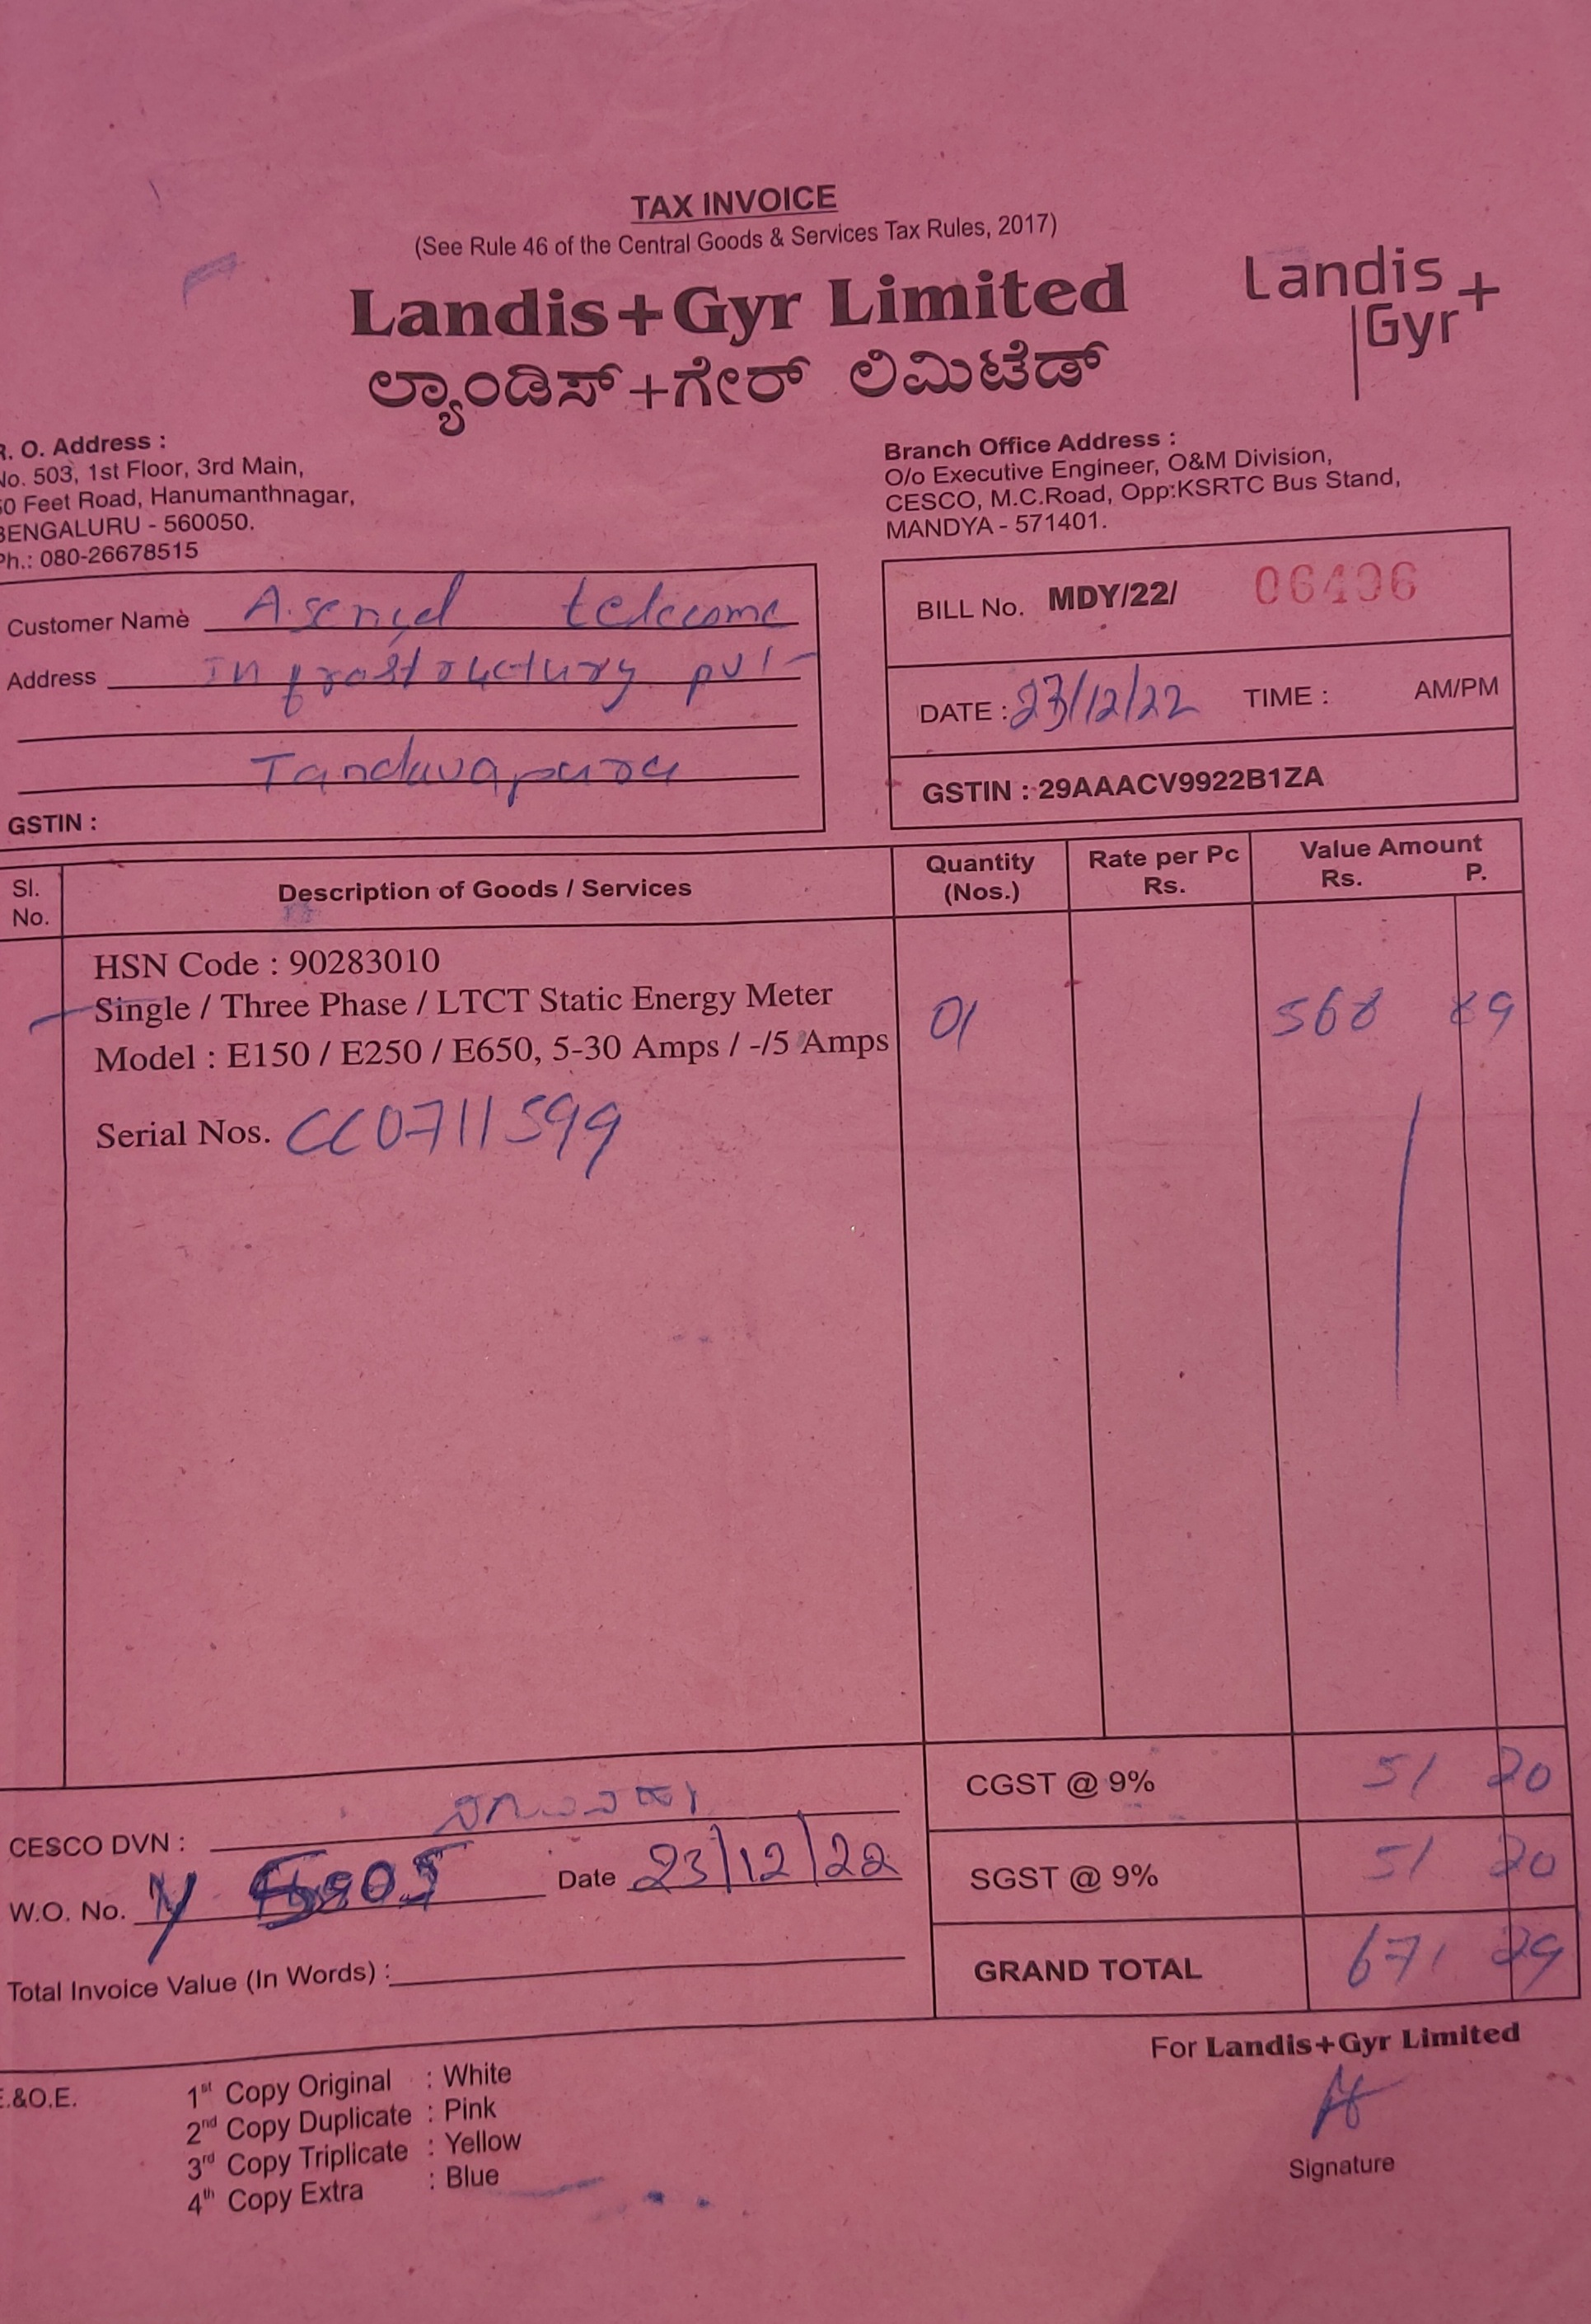 TAX INVOICE
(See Rule 46 of the Central Goods & Services Tax Rules, 2017)
Landis+Gyr Limited
ಲ್ಯಾಂಡಿಸ್+ಗೇರ್ ಲಿಮಿಟೆಡ್
Landis+
Gyr
R. O. Address :
No. 503, 1st Floor, 3rd Main,
50 Feet Road, Hanumanthnagar,
BENGALURU - 560050.
Ph.: 080-26678515
Branch Office Address :
O/o Executive Engineer, O&M Division,
CESCO, M.C.Road, Opp:KSRTC Bus Stand,
MANDYA - 571401.
Customer Name telecome
Address Infrastructury pvt
Tandavapura
GSTIN :
BILL No. MDY/22/ 06406
DATE : 23/12/22 TIME : AM/PM
GSTIN : 29AAACV9922B1ZA
Sl. No. Description of Goods / Services Quantity (Nos.) Rate per Pc Rs. Value Amount Rs. P.
HSN Code : 90283010
Single / Three Phase / LTCT Static Energy Meter 01 568 89
Model : E150 / E250 / E650, 5-30 Amps / -/5 Amps
Serial Nos. CC0711599
CGST @ 9% 51 20
CESCO DVN :
SGST @ 9% 51 20
W.O. No. Date 23/12/22
GRAND TOTAL 671 29
Total Invoice Value (In Words) :
For Landis+Gyr Limited
E.&O.E.
1st Copy Original : White
2nd Copy Duplicate : Pink
3rd Copy Triplicate : Yellow
4th Copy Extra : Blue
Signature